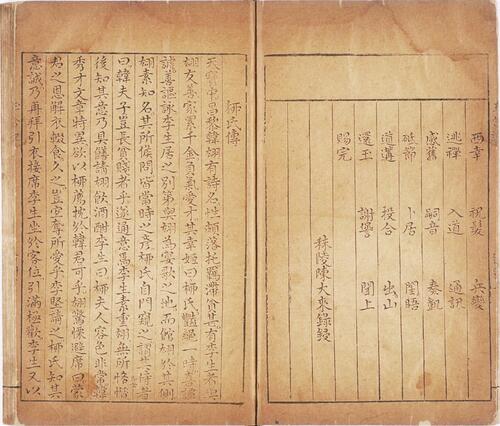 西幸 祝髮 兵變
逃禪 入道 通訊
感舊 嗣音 奏凱
砥節 卜居 閨晤
道遘 投合 出山
還玉 閨上
賜完
秣陵陳大來錄鋟
柳氏傳
天寶中昌黎韓翃有詩名性頗落托羈滯貧甚有李生者與
翃友善家累千金負氣愛才其幸姬曰柳氏豔絕一時喜談
謔善謳詠李生居之別第與翃為宴歌之地而館翃於其側
翃素知名其所候問皆當時之彥柳氏自門窺之謂其侍者
曰韓夫子豈長貧賤者乎遂通意焉李生素重翃無所恡惜
後知其意乃具饍請翃飲酒酣李生曰柳夫人容色非常韓
秀才文章特異欲以柳薦枕於韓君可乎翃驚慄避席曰蒙
君之恩解衣輟食久之豈宜奪所愛乎李堅請之柳氏知其
意誠乃再拜引衣接席李生坐於客位引滿極歡李生又以